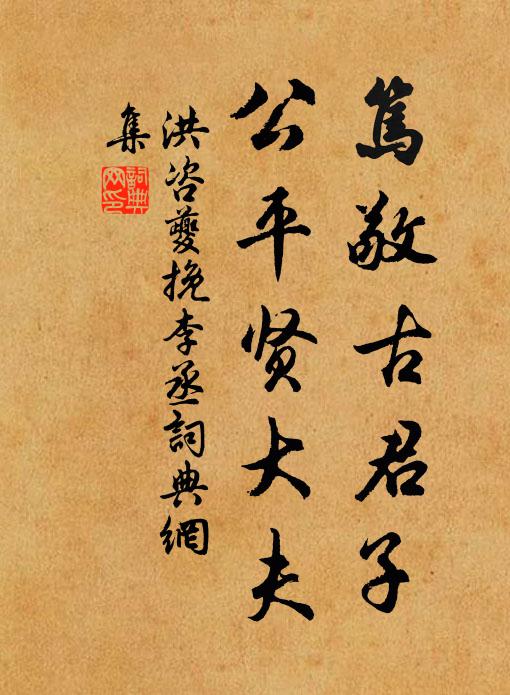 篤敬古君子
公平贤大夫
洪咨夔挽李丞詞典網
集
詞典
网印